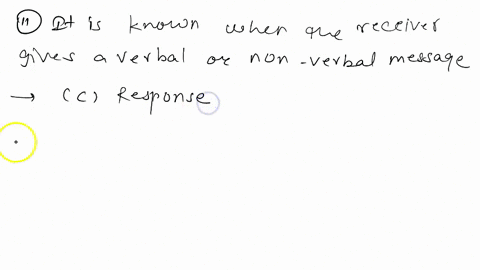 (11) It is known when the receiver
gives a verbal or non-verbal message
→ (c) Response